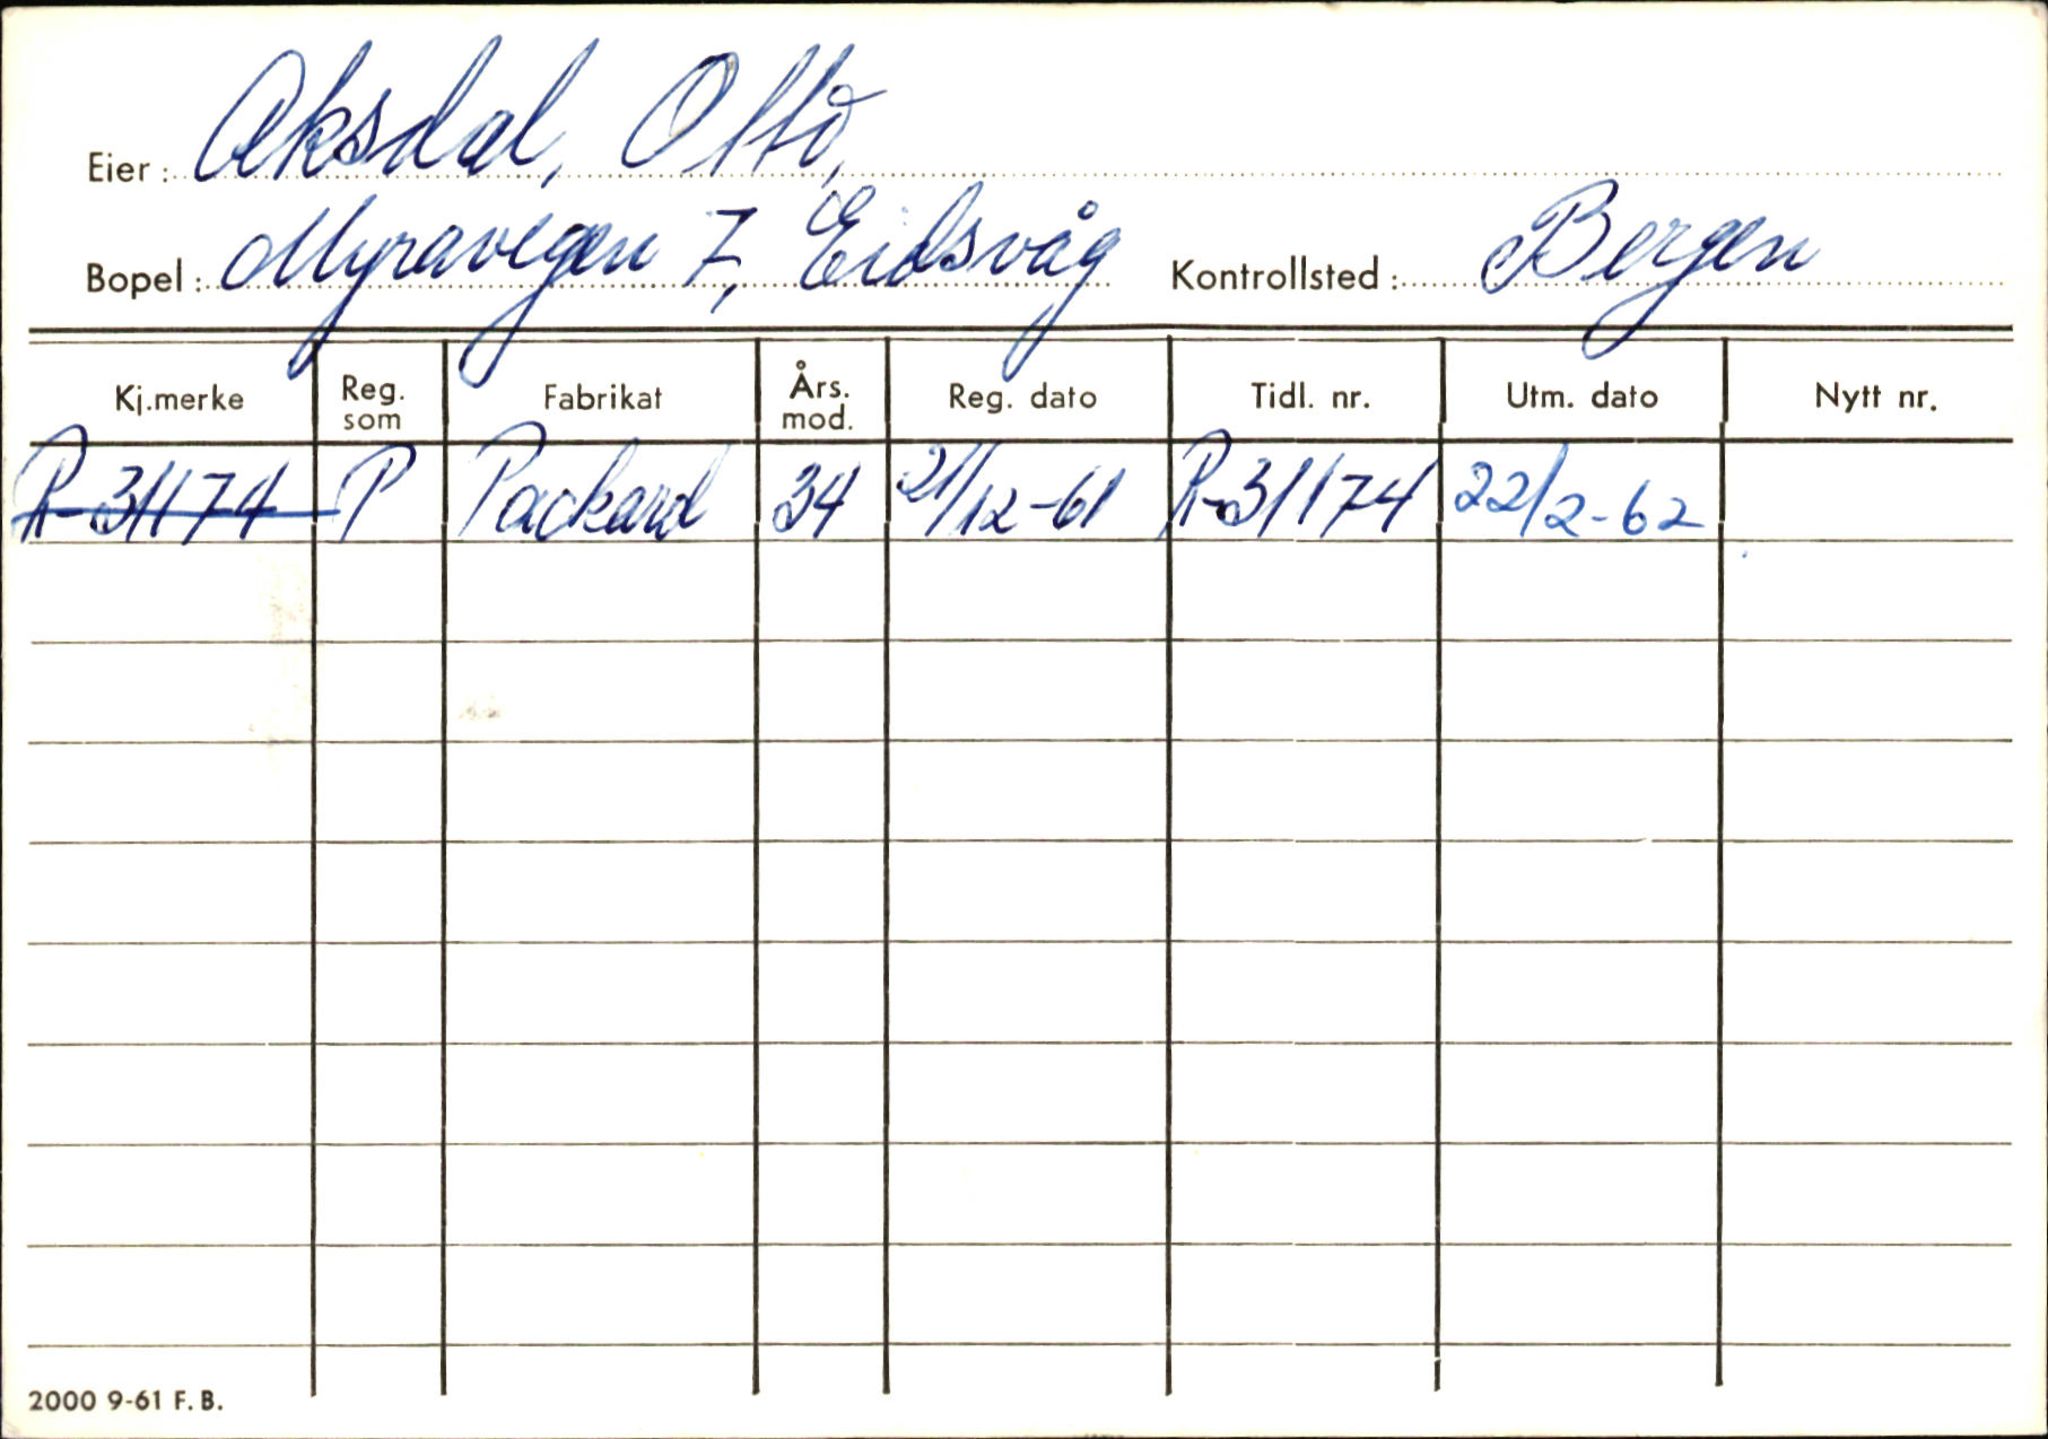 Eier: Aksdal, Otto,
Bopel: Myravegen 7, Eidsvåg Kontrollsted: Bergen
Kj.merke Reg. som Fabrikat Års. mod. Reg. dato Tidl. nr. Utm. dato Nytt nr.
R-31174 P Packard 34 21/12-61 R-31174 22/2-62
2000 9-61 F.B.